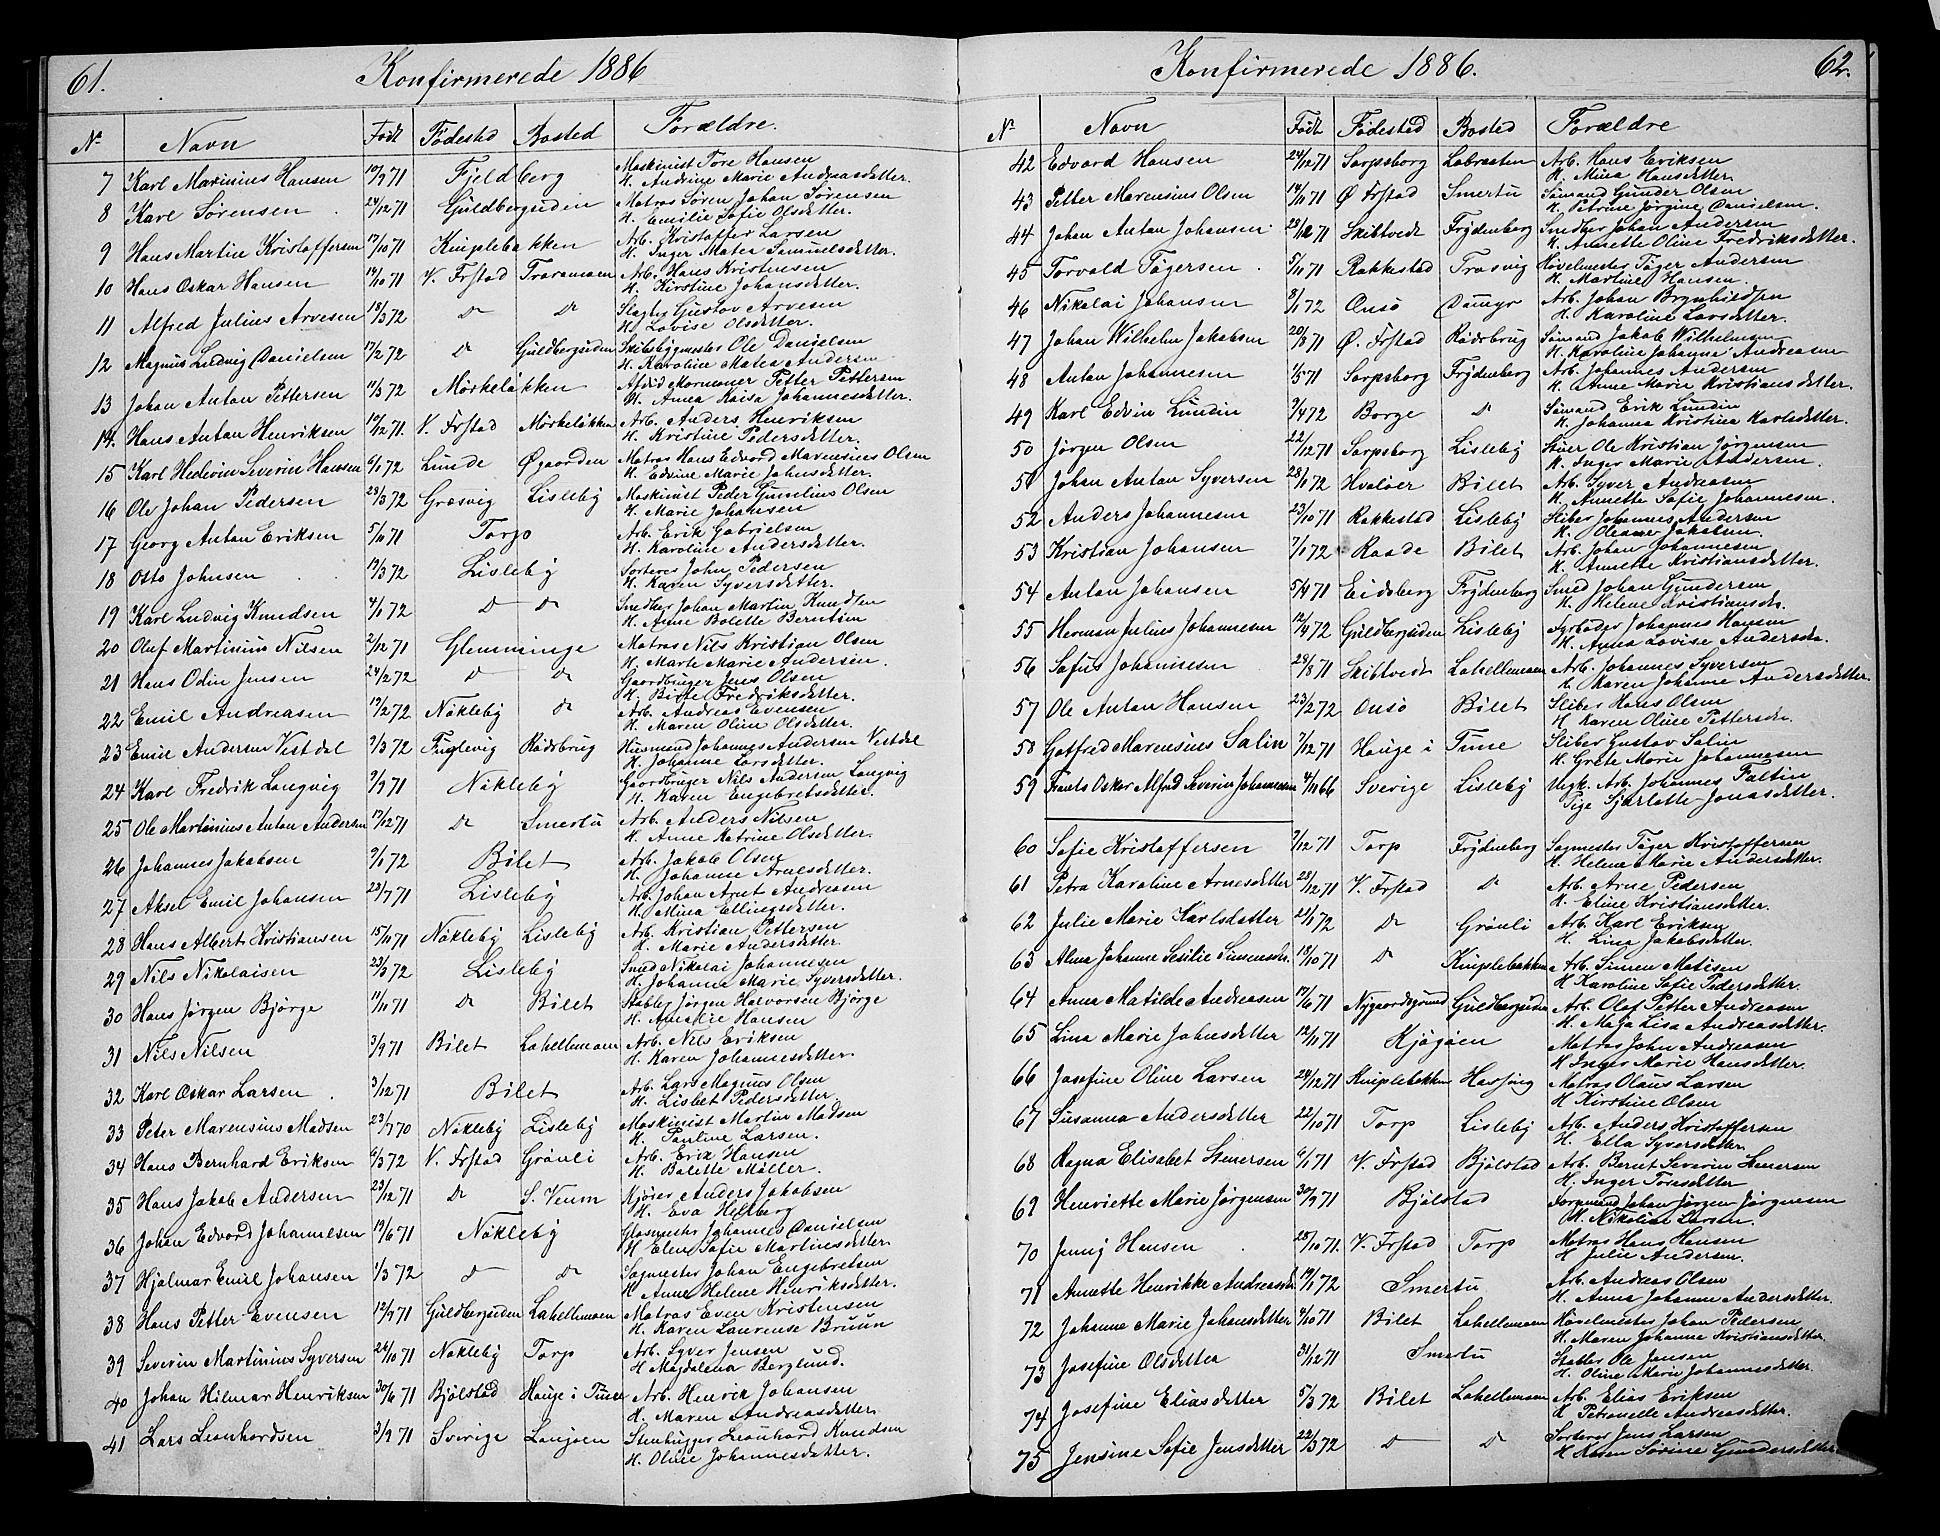 61.
Konfirmerede 1886
Nr Navn Født Fødested Bosted Forældre.
7 Karl Marinius Hansen 10/9 71 Fjeldberg Maskinist Tore Hansen
H. Andrine Marie Andreasdatter.
8 Karl Sørensen 24/12 71 Guldbergsiden Matros Søren Johan Sørensen
H. Emilie Sofie Olsdatter.
9 Hans Martin Kristoffersen 17/10 71 Kniplebakken Arb. Kristoffer Larsen
H. Inger Matea Samuelsdatter.
10 Hans Oskar Hansen 14/10 71 V. Frstad Traramoen Arb. Hans Kristensen
H. Kirstine Johansdatter.
11 Alfred Julius Arvesen 18/3 72 Do Do Slagter Gustav Arvesen
H. Lovise Olsdatter.
12 Magnus Ludvig Danielsen 17/2 72 Do Guldbergsiden Skibsbygmester Ole Danielsen
H. Karoline Matea Andersen
13 Johan Anton Pettersen 11/3 72 Mørkeløkken Afskd Mormoner Petter Pettersen
H. Anna Kaisa Johannesdatter.
14. Hans Anton Henriksen 10/12 71. V. Frstad Mørkeløkken Arb. Anders Henriksen
H. Kristine Pedersdatter.
15 Karl Hedevin Severin Hansen 6/1 72 Lunde Øgaarden Matros Hans Edvard Marensius Olsen
H. Edvine Marie Johansdatter.
16 Ole Johan Pedersen 28/3 72 Græsvig Lisleby Maskinist Peder Gunelius Olsen
H. Marie Johansen
17 Georg Anton Eriksen 5/11 71 Torp Arb. Erik Gabrielsen
H. Karoline Andersdatter.
18 Otto Johnsen 19/3 72 Lisleby Sorterer John Pedersen
H. Karen Syversdatter.
19 Karl Ludvig Knudsen 4/1 72 Do Do Snedker Johan Martin Knudsen
H. Anne Bolette Berntsen
20 Oluf Martinius Nilsen 2/12 71 Glemminge Matros Nils Kristian Olsen
H. Marte Marie Andersen
21 Hans Odin Jensen 24/2 72 Do Do Gaardbruger Jens Olsen
H. Birte Fredriksdatter.
22 Emil Andreasen 19/2 72 Nøkleby Do Arb. Andreas Evensen
H. Maren Oline Olsdatter
23 Emil Andersen Vestdal 7/3 72 Fuglevig Rødsbrug Husmand Johannes Andersen Vestdal
H. Johanne Larsdatter.
24 Karl Fredrik Langvig 9/9 71 Nøkleby Gaardbruger Nils Andersen Langvig
H. Karen Engebretsdatter.
25 Ole Martinius Anton Andersen 17/12 71 Do Smertu Arb. Anders Nilsen
H. Anne Katrine Olsdatter.
26 Johannes Jakobsen 9/1 72 Bilet Arb. Jakob Olsen
H. Johanne Arnesdatter.
27 Aksel Emil Johansen 23/7 71 Lisleby Arb. Johan Arnt Andreasen
H. Mina Ellingsdatter.
28 Hans Albert Kristiansen 15/11 71 Nøkleby Lisleby Arb. Kristian Pettersen
H. Marie Andersdatter
29 Nils Nikolaisen 23/3 72 Lisleby Smed Nikolai Johannesen
H. Johanna Marie Syversdatter.
30 Hans Jørgen Bjørge 11/11 71 Do Bilet Stabler Jørgen Halvorsen Bjørge
H. Amalie Hansen
31 Nils Nilsen 3/9 71 Bilet Lahellemoen Arb. Nils Eriksen
H. Karen Johannesdatter.
32 Karl Oskar Larsen 3/12 71 Bilet Arb. Lars Magnus Olsen
H. Lisbet Pedersdatter.
33 Peter Marensius Madsen 23/7 70 Nøkleby Lisleby Maskinist Martin Madsen
H. Pauline Larsen.
34 Hans Bernhard Eriksen 6/3 72 V. Frstad Grønli Arb. Erik Hansen
H. Bolette Møller.
35 Hans Jakob Andersen 23/12 71 Do S. Veum Kjører Anders Jakobsen
H. Eva Helberg
36 Johan Edvard Johannesen 19/6 71 Nøkleby Glasmester Johannes Danielsen
H Elen Sofie Martinesdatter
37 Hjalmar Emil Johansen 1/3 72 Do Do Sagmester Johan Engebretsen
H Anne Helene Henriksdatter.
38 Hans Petter Evensen 12/9 71 Guldbergsiden Lahellemoen Matros Even Kristensen
H. Karen Laurense Bruun
39 Severin Martinius Syversen 26/10 71 Nøkleby Torp Arb. Syver Jensen
H Magdalena Berglund.
40 Johan Hilmar Henriksen 30/6 71 Bjølstad Hauge i Tune Arb. Henrik Johansen
H. Maren Andreasdatter
41 Lars Leonhardsen 3/9 71 Sverige Lanjoen Stenhugger Leonhard Knudsen
H. Oline Johannesdatter.
Konfirmerede 1886.
62.
Nr Navn Født Fødested Bosted Forældre
42 Edvard Hansen 24/12 71 Sarpsborg Labraaten Arb. Hans Eriksen
H. Mina Hansdatter.
43 Petter Marensius Olsen 14/11 71 Ø Frstad Smertu Sømand Gunder Olsen
H. Petrine Jørgine Danielsen.
44 Johan Anton Johansen 29/12 71 Skibtvedt Frydenberg Snedker Johan Andersen
H. Annette Oline Fredriksdatter.
45 Torvald Tøgersen 5/11 71 Rakkestad Trosvig Høvelmester Tøger Andersen
H. Martine Hansen.
46 Nikolai Johansen 8/1 72 Onsø Damyr Arb. Johan Brynhildsen
H. Karoline Larsdatter.
47 Johan Wilhelm Jakobsen 20/8 71 Ø. Frstad Rødsbrug Sømand Jakob Wilhelmsen
H. Karoline Johanna Andreasen
48 Anton Johannesen 1/5 71 Sarpsborg Frydenberg Arb. Johannes Andersen
H. Anne Marie Kristiansdatter.
49 Karl Edvin Lundin 9/4 72 Borge Do Sømand Erik Lundin
H. Johanna Kristina Karlsdatter.
50 Jørgen Olsen 22/12 71 Sarpsborg Lisleby Stuer Ole Kristian Jørgensen
H. Inger Marie Andersen.
51 Johan Anton Syversen 28/1 72 Hvaløer Bilet Arb. Syver Andreasen
H. Annette Sofie Johannesen.
52 Anders Johannesen 23/10 71 Rakkestad Lisleby Sliber Johannes Andersen
H. Oleane Jakobsen.
53 Kristian Johansen 7/1 72 Raade Bilet Arb. Johan Johannesen
H. Annette Kristiansdatter.
54 Anton Johansen 5/4 71 Eidsberg Frydenberg Smed Johan Gundersen
H. Helene Kristiansdr.
55 Herman Julius Johannesen 12/4 72 Guldbergsiden Lisleby Fyrbøder Johannes Hansen
H. Anna Lovise Andersdr.
56 Sofus Johannesen 29/8 71 Skibtvedt Lahellemoen Arb. Johannes Syversen
H. Maren Johanne Andersdatter.
57 Ole Anton Hansen 23/2 72 Onsø Bilet Sliber Hans Olsen
H Karen Oline Pettersdr.
58 Gotfred Marensius Salin 7/12 71 Hauge i Tune Sliber Gustav Salin
H. Grete Marie Johannesen
59 Frants Oskar Alfred Severin Johannesen 4/11 66 Sverige Lisleby Ungk. Arb. Johannes Faltin
Pige Sjarlotte Jonasdatter.
60 Sofie Kristoffersen 7/12 71 Torp Frydenberg Sagmester Tøger Kristoffersen
H. Helene Marie Andersdatter.
61 Petra Karoline Arnesdatter 28/12 71 V. Frstad Do Arb. Arne Pedersen
H. Eline Kristiansdatter.
62 Julie Marie Karlsdatter 21/1 72 Do Grønli Arb. Karl Eriksen
H. Lina Jakobsdatter.
63 Alma Johanne Sesilie Simensdr. 18/10 71 Do Kniplebakken Arb. Simen Matisen
H Karoline Sofie Pedersdatter.
64 Anna Matilde Andreasen 17/6 71 Nygaardsgrund Guldbergsiden Arb. Olof Petter Andreasen
H. Maja Lisa Andreasdatter.
65 Lina Marie Johnsdatter 12/11 71 Kjøgøen Matros John Andreasen
H Inger Marie Hansdatter.
66 Josefine Oline Larsen 24/12 71 Kniplebakken Hassing Matros Olaus Larsen
H Kirstine Olsen
67 Susanna Andersdatter 22/10 71 Torp Lisleby Arb. Anders Kristoffersen
H. Ella Syversdatter.
68 Ragna Elisabet Stenersen 6/1 71 V. Frstad Bjølstad Arb. Bernt Severin Stenersen
H. Inger Toresdatter
69 Henriette Marie Jørgensen 30/9 71 Bjølstad Formand Johan Jørgen Jørgensen
H. Nikoline Larsen.
70 Jenny Hansen 25/10 71. V. Frstad Torp Matros Hans Hansen
H Julie Andersen.
71 Annette Henrikke Andreasdr. 19/1 72 Smertu Arb. Andreas Olsen
H. Anna Johanne Andersdatter.
72 Johanne Marie Johansdatter 4/10 71 Bilet Lahellemoen Høvelmester Johan Pedersen
H. Maren Johanne Kristiansdatter.
73 Josefine Olsdatter 31/12 71 Smertu Stabler Ole Jensen
H. Oline Marie Johannesdatter.
74 Josefine Eliasdatter 5/3 72 Bilet Lahellemoen Arb. Elias Eriksen
H Petronelle Andreasdatter.
75 Jensine Sofie Jensdatter 22/3 72 Do Do Sorterer Jens Larsen
H Karen Sørine Gundersdatter.